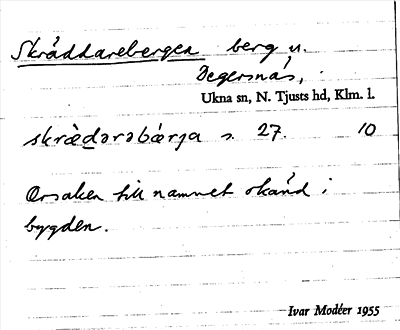 Skräddarebergen berg u.
Degersnäs,
Ukna sn, N. Tjusts hd, Klm. l.
skræ̀darabærja s. 27. 10
Orsaken till namnet okänd i
bygden.
Ivar Modéer 1955